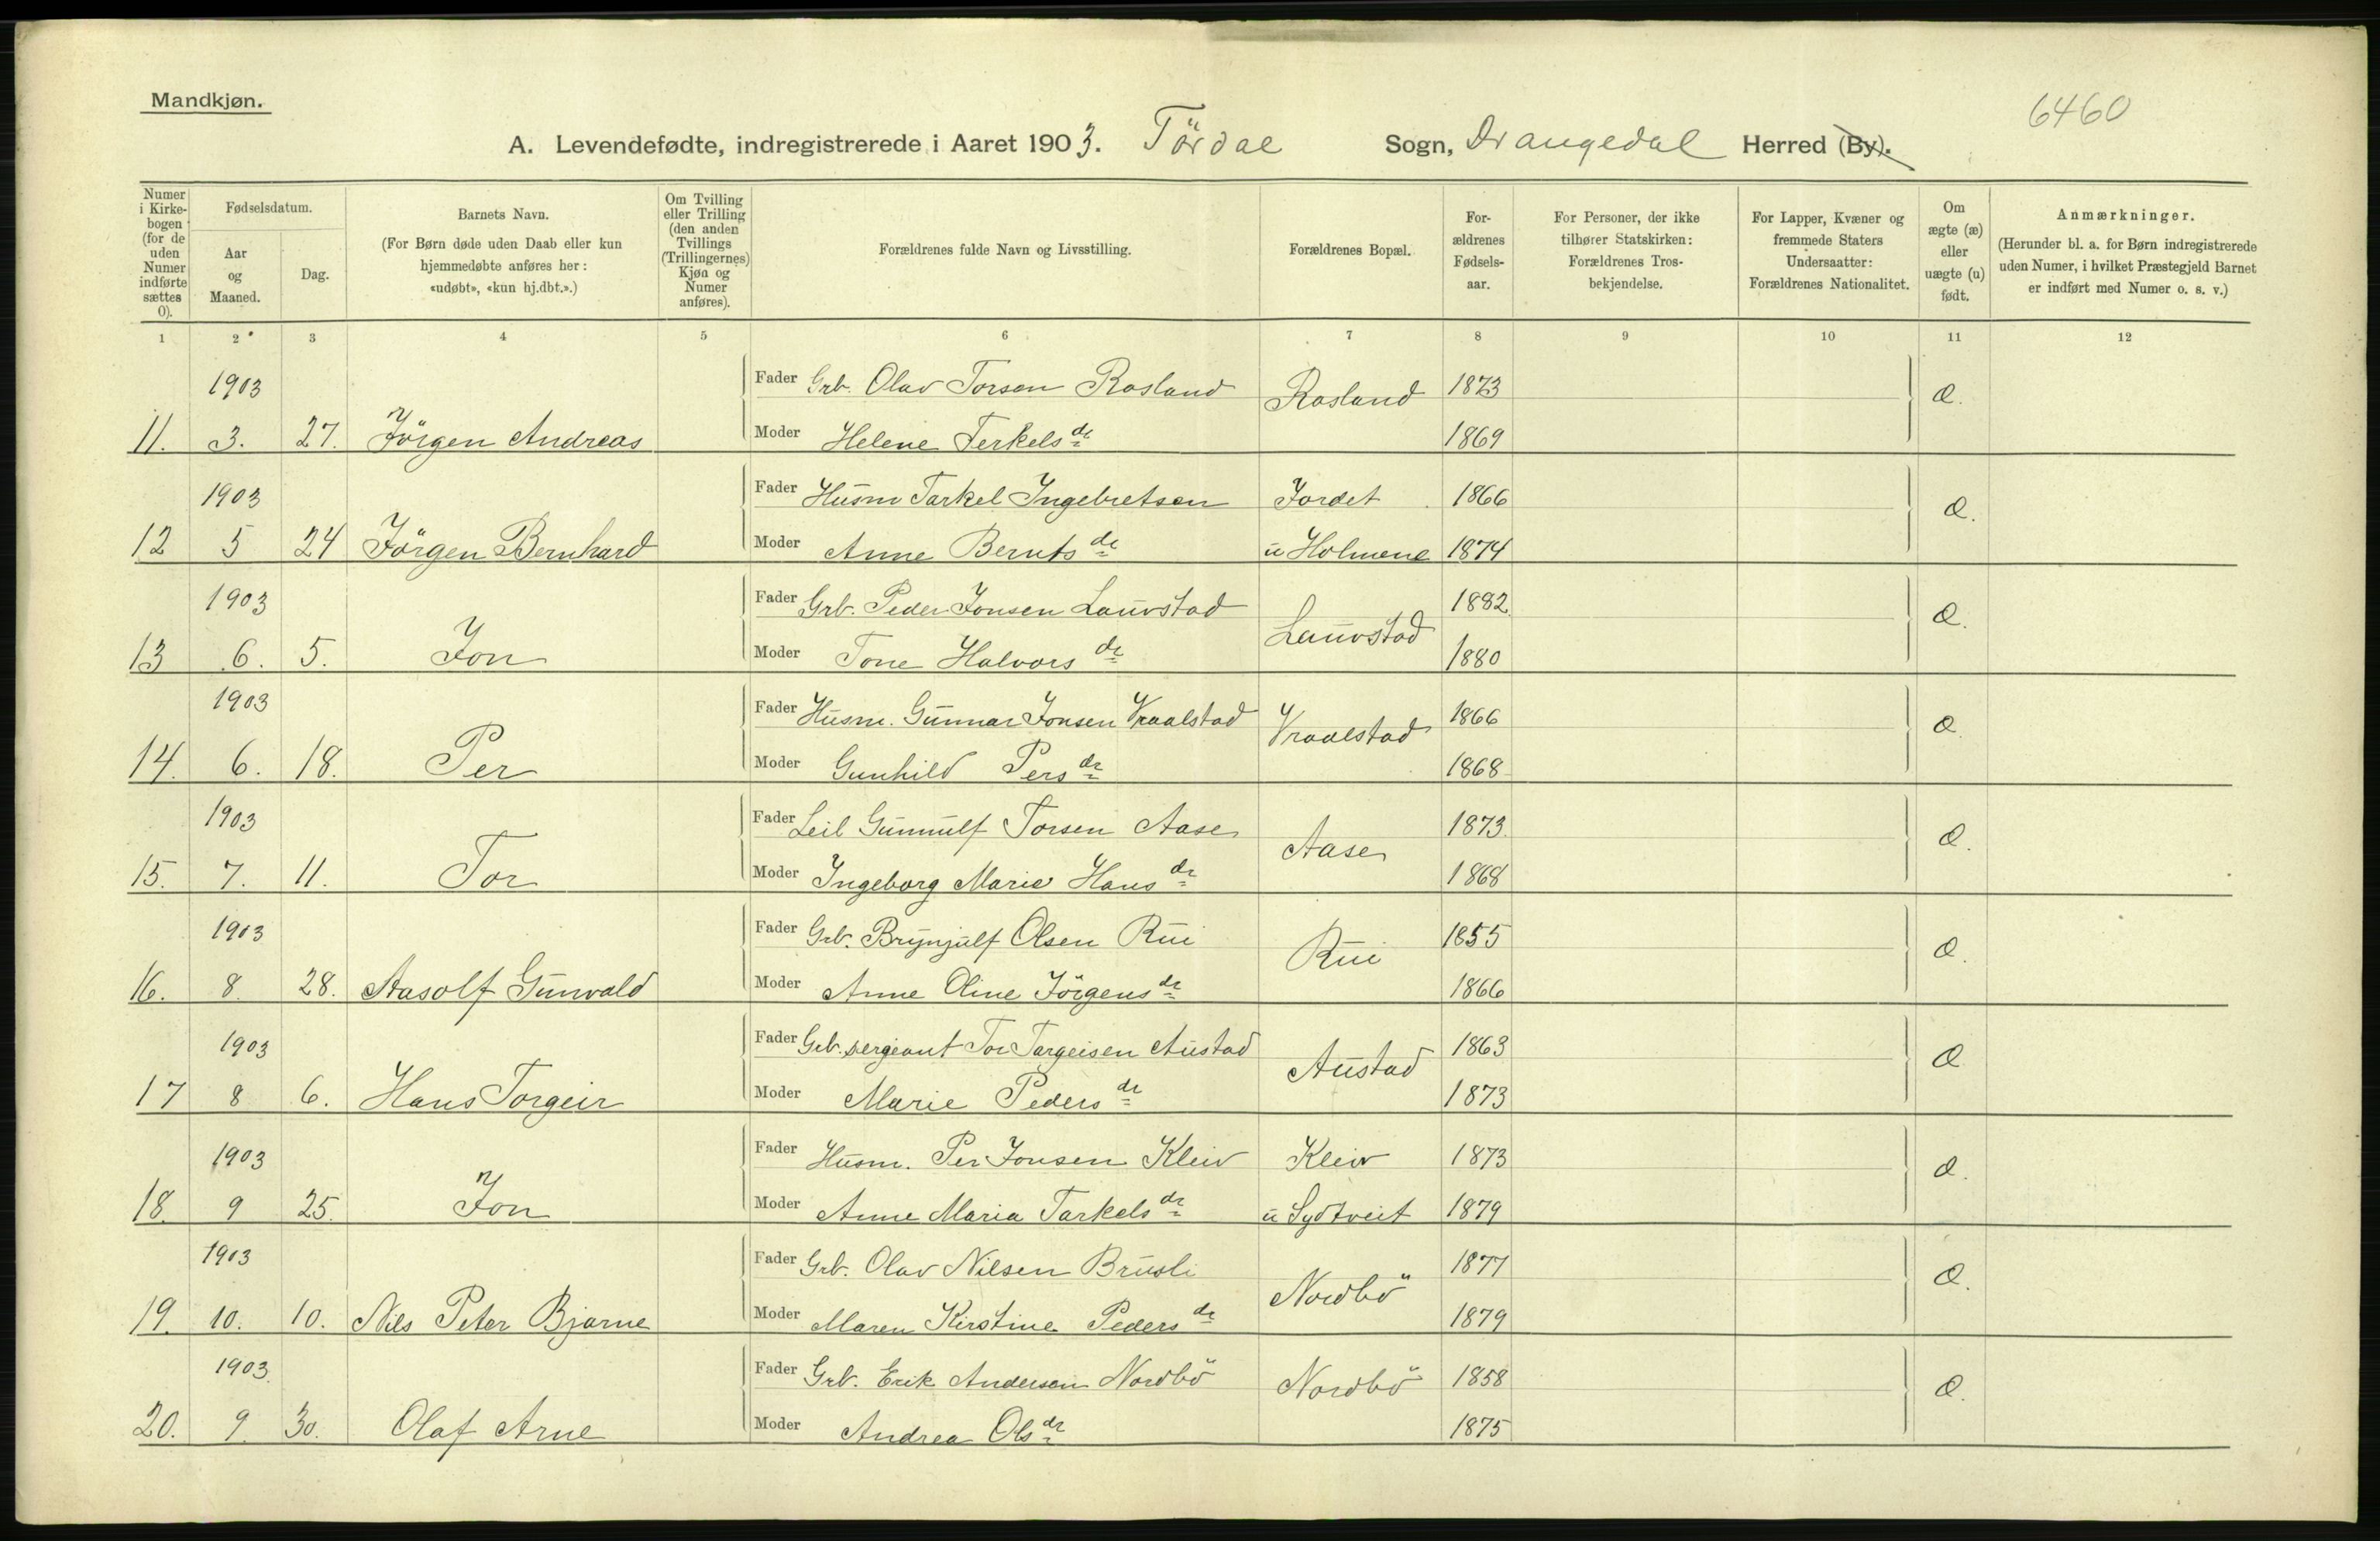 Mandkjøn.
6460
A. Levendefødte, indregistrerede i Aaret 1903. Tördal Sogn, Drangedal Herred (By).
Numer i Kirkebogen (for de uden Numer indførte sættes 0).
Fødselsdatum.
Aar og Maaned.
Dag.
Barnets Navn.
(For Børn døde uden Daab eller kun hjemmedøbte anføres her: «udøbt», «kun hj.dbt.».)
Om Tvilling eller Trilling (den anden Tvillings (Trillingernes) Kjøn og Numer anføres).
Forældrenes fulde Navn og Livsstilling.
Forældrenes Bopæl.
Forældrenes Fødselsaar.
For Personer, der ikke tilhører Statskirken: Forældrenes Trosbekjendelse.
For Lapper, Kvæner og fremmede Staters Undersaatter: Forældrenes Nationalitet.
Om ægte (æ) eller uægte (u) født.
Anmærkninger.
(Herunder bl. a. for Børn indregistrerede uden Numer, i hvilket Præstegjeld Barnet er indført med Numer o. s. v.)
1 2 3 4 5 6 7 8 9 10 11 12
1903 Fader Grb. Olav Torsen Rosland Rosland 1873 æ.
11. 3. 27. Jörgen Andreas Moder Helene Terkelsdr 1869
1903 Fader Husm Tarkel Ingebretsen Jordet 1866 æ.
12 5 24 Jörgen Bernhard Moder Anne Berntsdr u Holmene 1874
1903 Fader Grb. Peder Jonsen Laurstad Laurstad 1882. æ.
13 6. 5. Jon Moder Tone Halvorsdr 1880
1903 Fader Husm. Gunnar Jonsen Vraalstad Vraalstad 1866 æ.
14. 6. 18. Per Moder Gunhild Persdr 1868
1903 Fader Leil Gunnulf Torsen Aase Aase 1873. æ.
15. 7. 11. Tor Moder Ingeborg Marie Hansdr 1868
1903 Fader Grb. Brynjulf Olsen Rui Rui 1855 æ.
16. 8. 28. Aasolf Gunvald Moder Anne Oline Jörgensdr 1866
1903 Fader Grb. sergeant Tor Targeisen Austad Austad 1863 æ
17 8 6. Hans Torgeir Moder Marie Pedersdr 1873
1903 Fader Husm. Per Jonsen Kleiv Kleiv 1873 æ.
18. 9 25. Jon Moder Anne Maria Tarkelsdr u Sydtveit 1879
1903 Fader Grb. Olav Nilsen Brusli Nordbö 1877 æ.
19. 10. 10. Nils Peter Bjarne Moder Maren Kirstine Pedersdr 1879
1903. Fader Grb. Erik Andersen Nordbö Nordbö 1858 æ.
20. 9. 30. Olaf Arne Moder Andrea Olsdr 1875